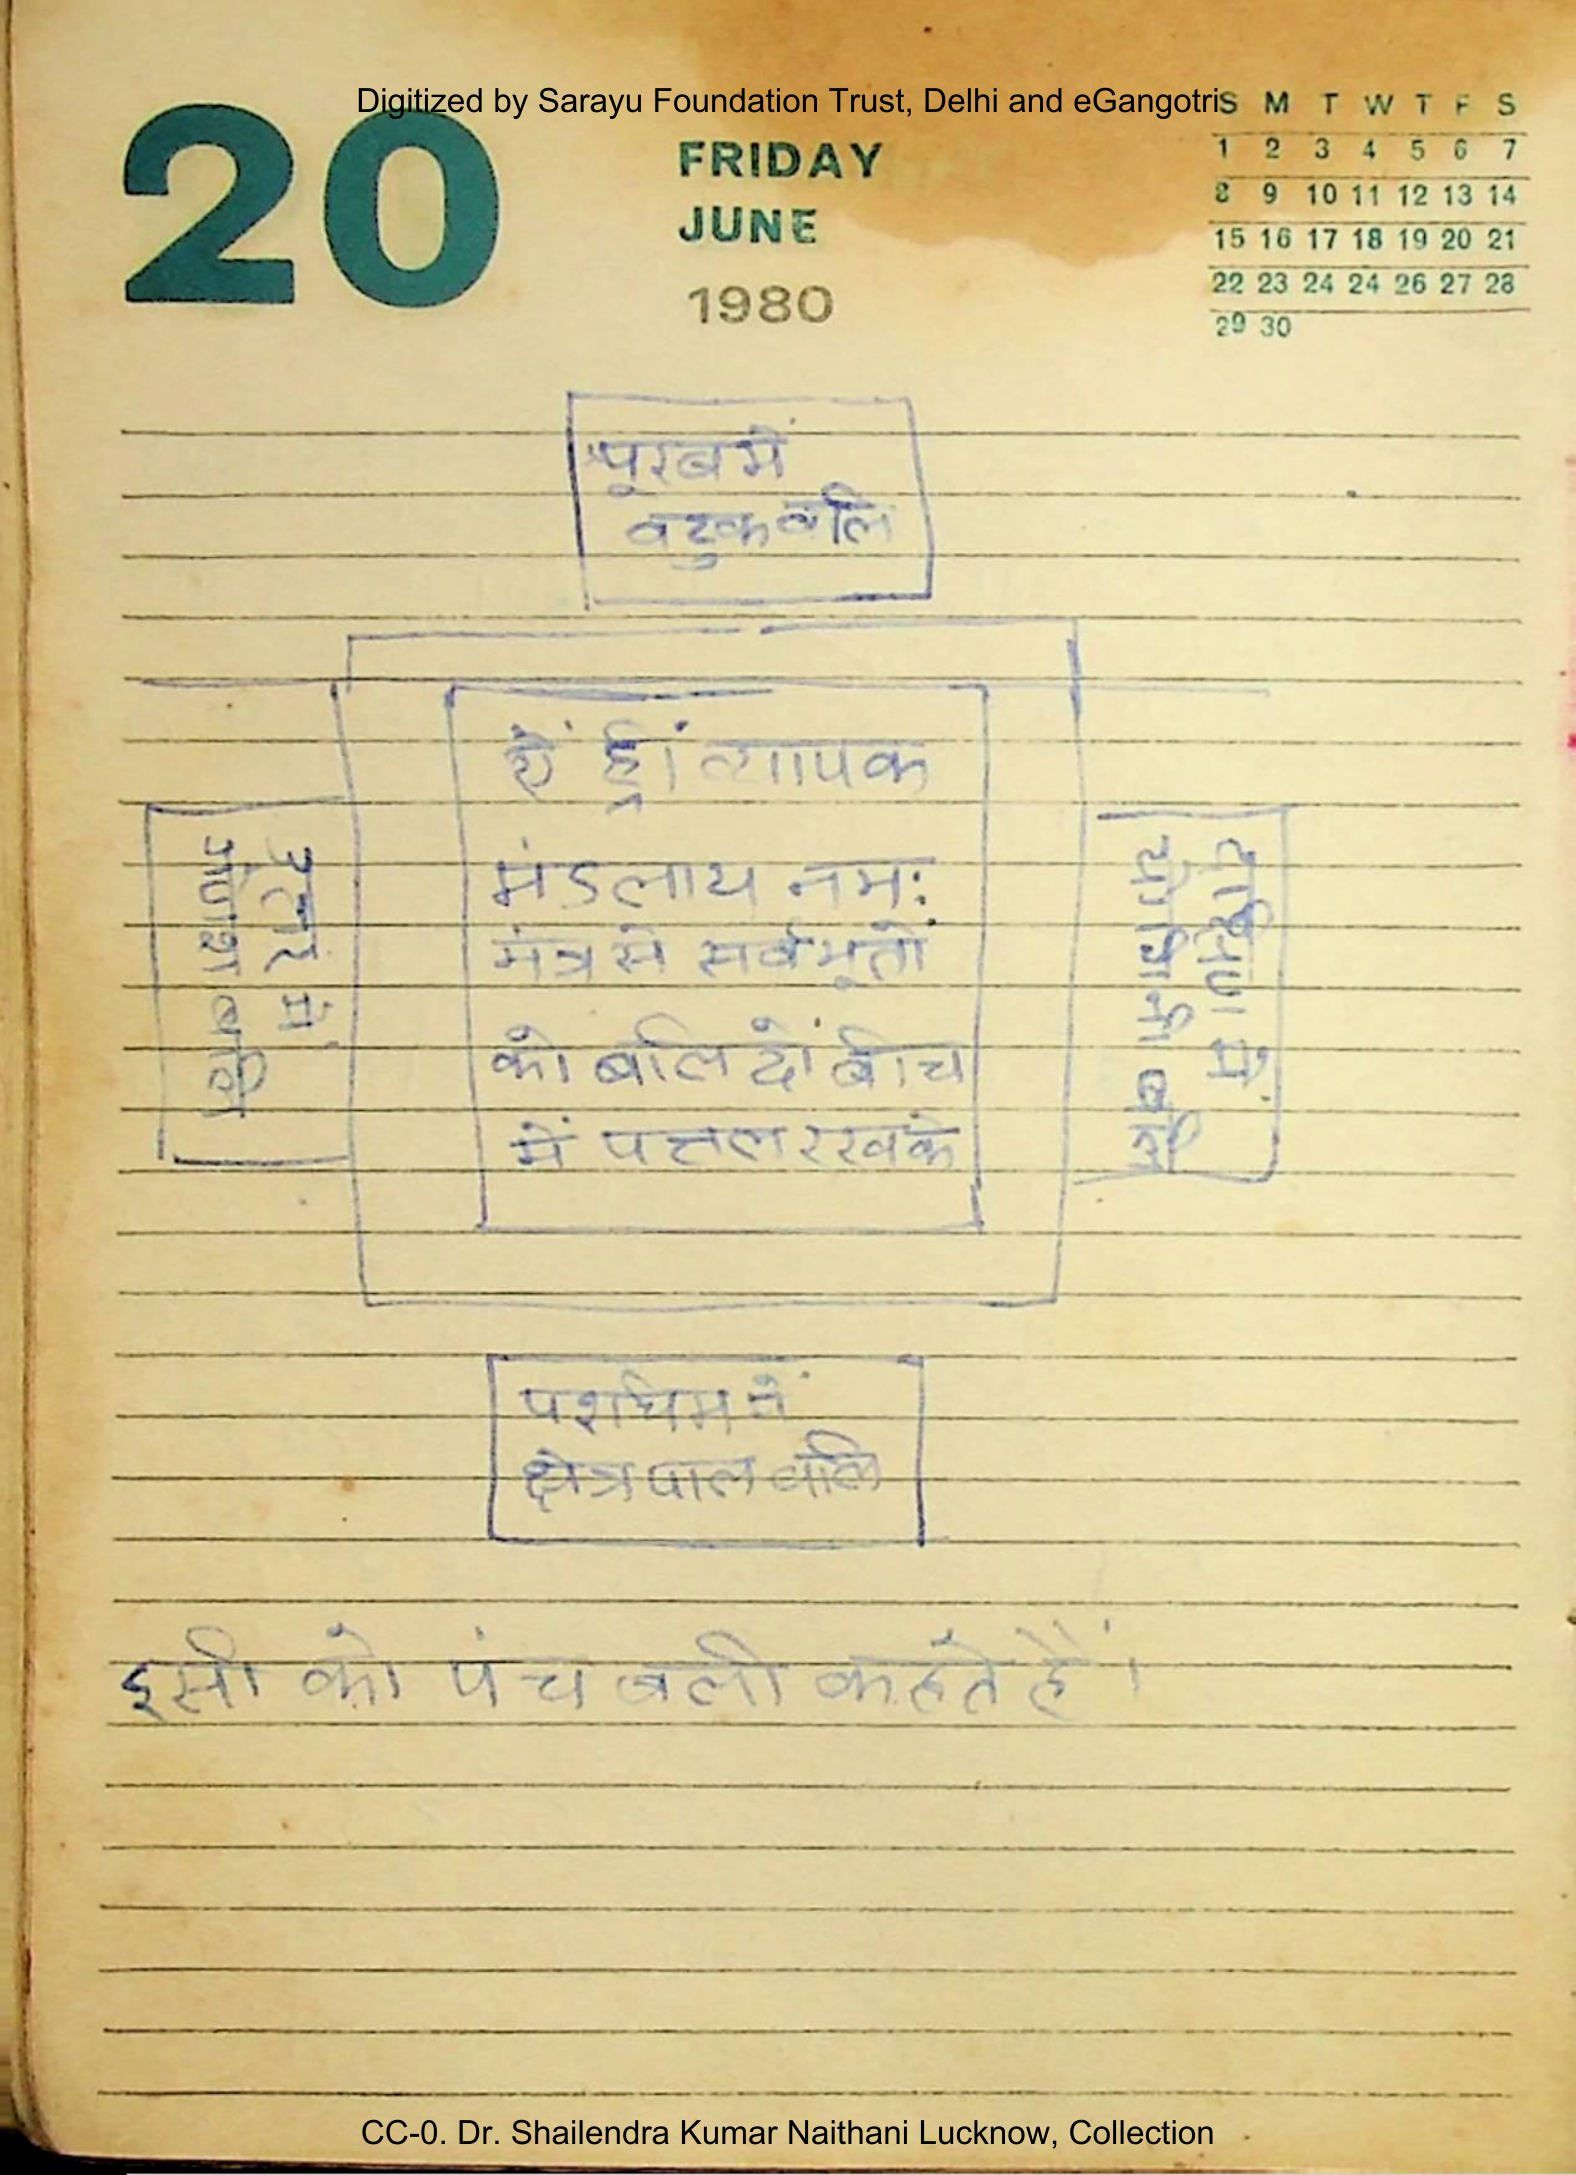 Digitized by Sarayu Foundation Trust, Delhi and eGangotri
20
FRIDAY
JUNE
1980
S M T W T F S
1 2 3 4 5 6 7
8 9 10 11 12 13 14
15 16 17 18 19 20 21
22 23 24 24 26 27 28
29 30
पूरब में
वटुक बलि
उत्तर में
गणेश बलि
ह्रीं व्यापक
मंडलाय नमः
मंत्र से सर्वभूतों
को बलि दें बीच
में पत्तल रखके
दक्षिण में
योगिनी बलि
पश्चिम में
क्षेत्रपाल बलि
इसी को पंच बली कहते हैं।
CC-0. Dr. Shailendra Kumar Naithani Lucknow, Collection